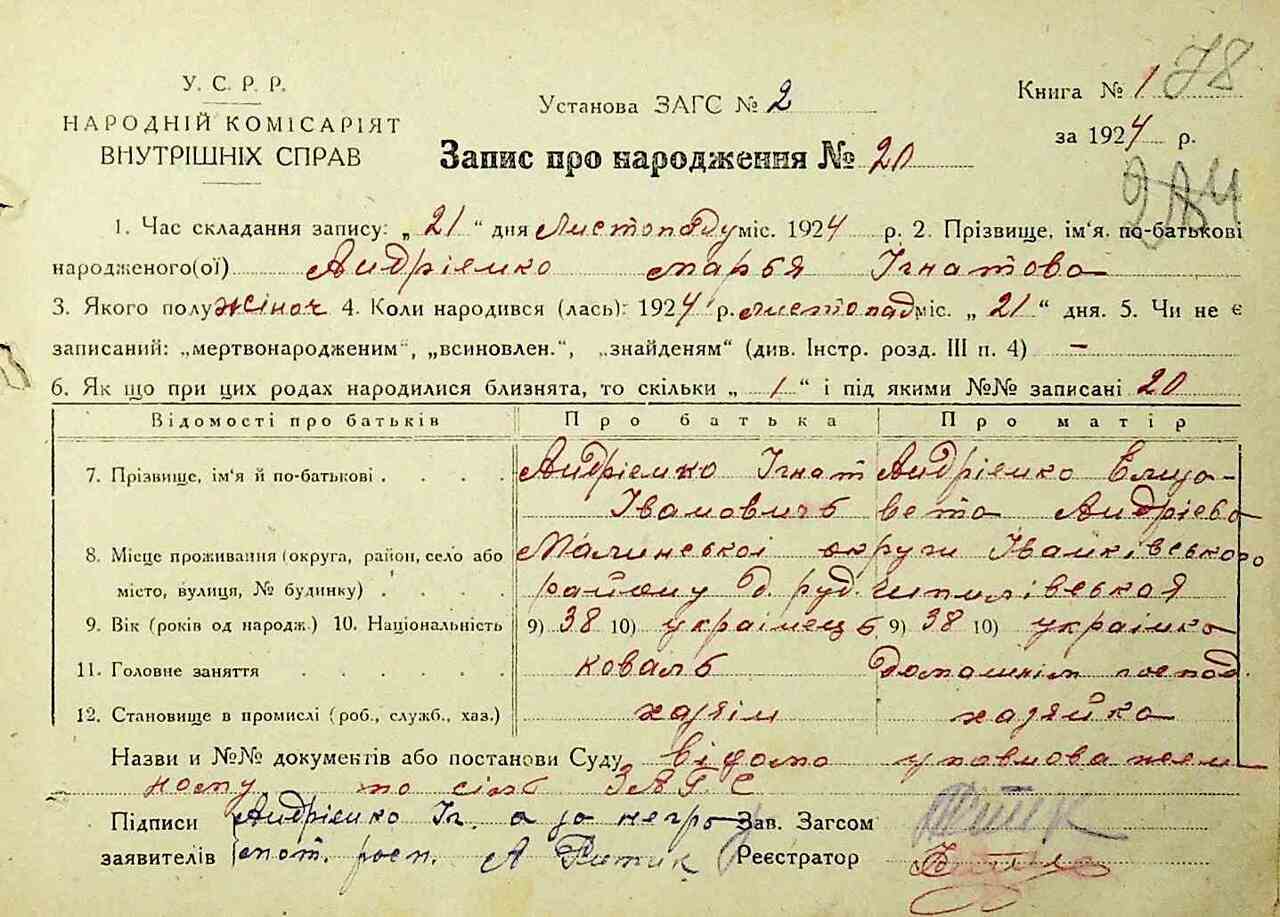 У. С. Р. Р.
НАРОДНІЙ КОМІСАРІЯТ
ВНУТРІШНІХ СПРАВ
Установа ЗАГС № 2
Книга № 1 78
за 1924 р.
Запис про народження № 20
1. Час складання запису: „ 21 “ дня Листопаду міс. 1924 р. 2. Прізвище, ім'я, по-батькові
народженого(ої) Андріенко Марья Ігнатова
3. Якого полу жіноч 4. Коли народився (лась): 1924 р. листопад міс. „ 21 “ дня. 5. Чи не є
записаний: „мертвонародженим“, „всиновлен.“, „знайденям“ (див. Інстр. розд. III п. 4) –
6. Як що при цих родах народилися близнята, то скільки „ 1 “ і під якими №№ записані 20
Відомості про батьків Про батька Про матір
7. Прізвище, ім'я й по-батькові . . . . Андріенко Ігнат Івановичь Андріенко Елизавета Андріева
8. Місце проживання (округа, район, село або
місто, вулиця, № будинку) . . . . Малинськоі округи Іванківського
району д. руд.
9. Вік (років од народж.) 10. Національність 9) 38 10) украінець 9) 38 10) украінка
11. Головне заняття . . . . . . коваль домашнім господ.
12. Становище в промислі (роб., служб., хаз.) хазяін хазяйка
Назви и №№ документів або постанови Суду відомо
ЗАГС
Підписи Андріенко Іг. а за негр Зав. Загсом
заявителів А Ритик Реєстратор